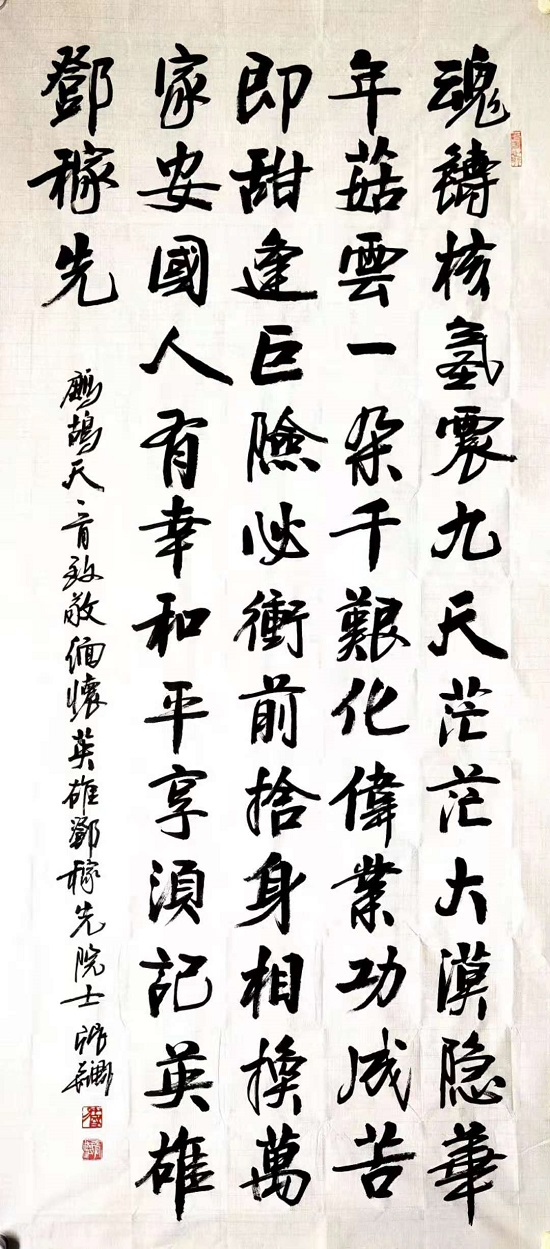 魂鑄核氫震九天茫茫大漠隐華
年菇雲一朵千艱化偉業功成苦
即甜逢巨險必衝前捨身相換萬
家安國人有幸和平享須記英雄
鄧稼先
鹧鸪天、一首致敬缅懷英雄鄧稼先院士